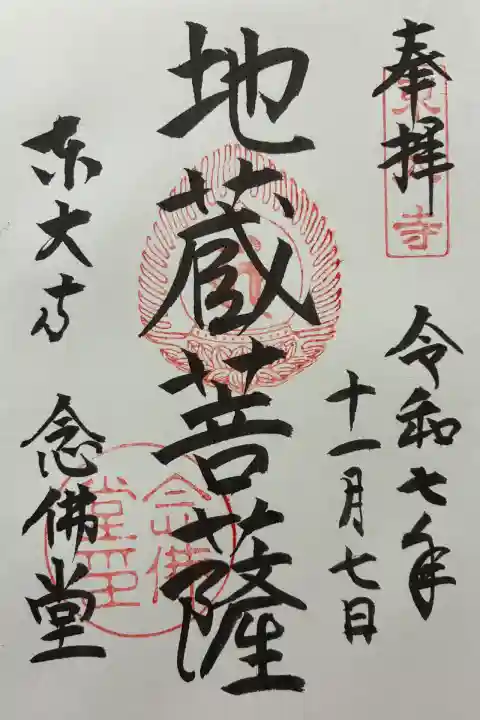 奉拝
令和七年
十一月七日
地蔵菩薩
東大寺
念佛堂
念佛
堂印